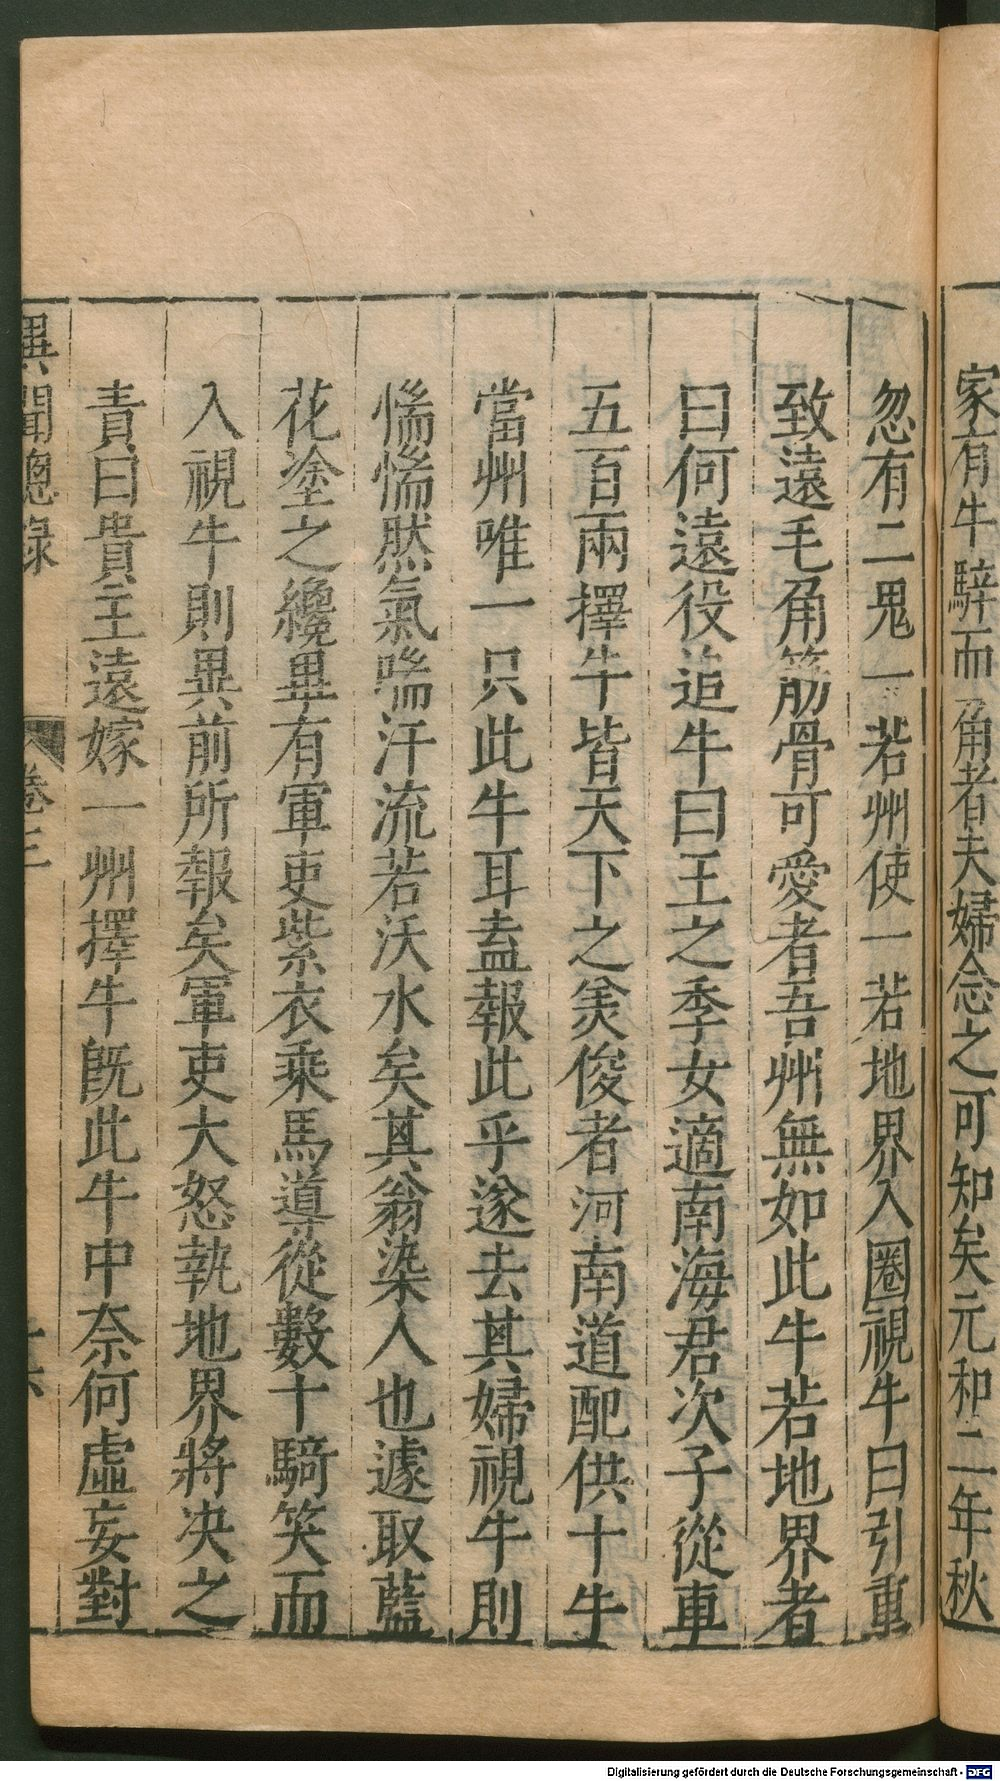 家有牛騂而角者夫婦念之可知矣元和二年秋
忽有二鬼一若州使一若地界入圈視牛曰引重
致遠毛角筋骨可愛者吾州無如此牛若地界者
曰何遠役追牛曰王之季女適南海君次子從車
五百兩擇牛皆天下之美俊者河南道配供十牛
當州唯一只此牛耳盍報此乎遂去其婦視牛則
惴惴然氣喘汗流若沃水矣其翁染人也遽取藍
花塗之纔畢有軍吏紫衣乘馬導從數十騎笑而
入視牛則異前所報矣軍吏大怒執地界將决之
責曰貴主遠嫁一州擇牛旣此牛中奈何虛妄對
異聞總錄
卷三
Digitalisierung gefördert durch die Deutsche Forschungsgemeinschaft - DFG